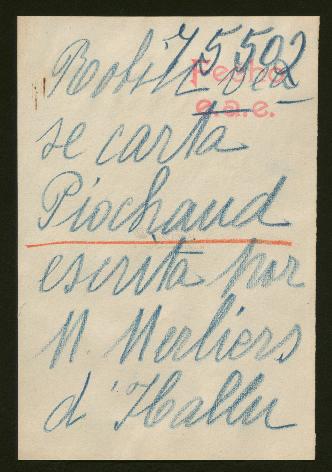 75502
Robill vea
Pecho
e.a.e.
se carta
Piochaud
escrita por
N. Merliers
d'Hallu